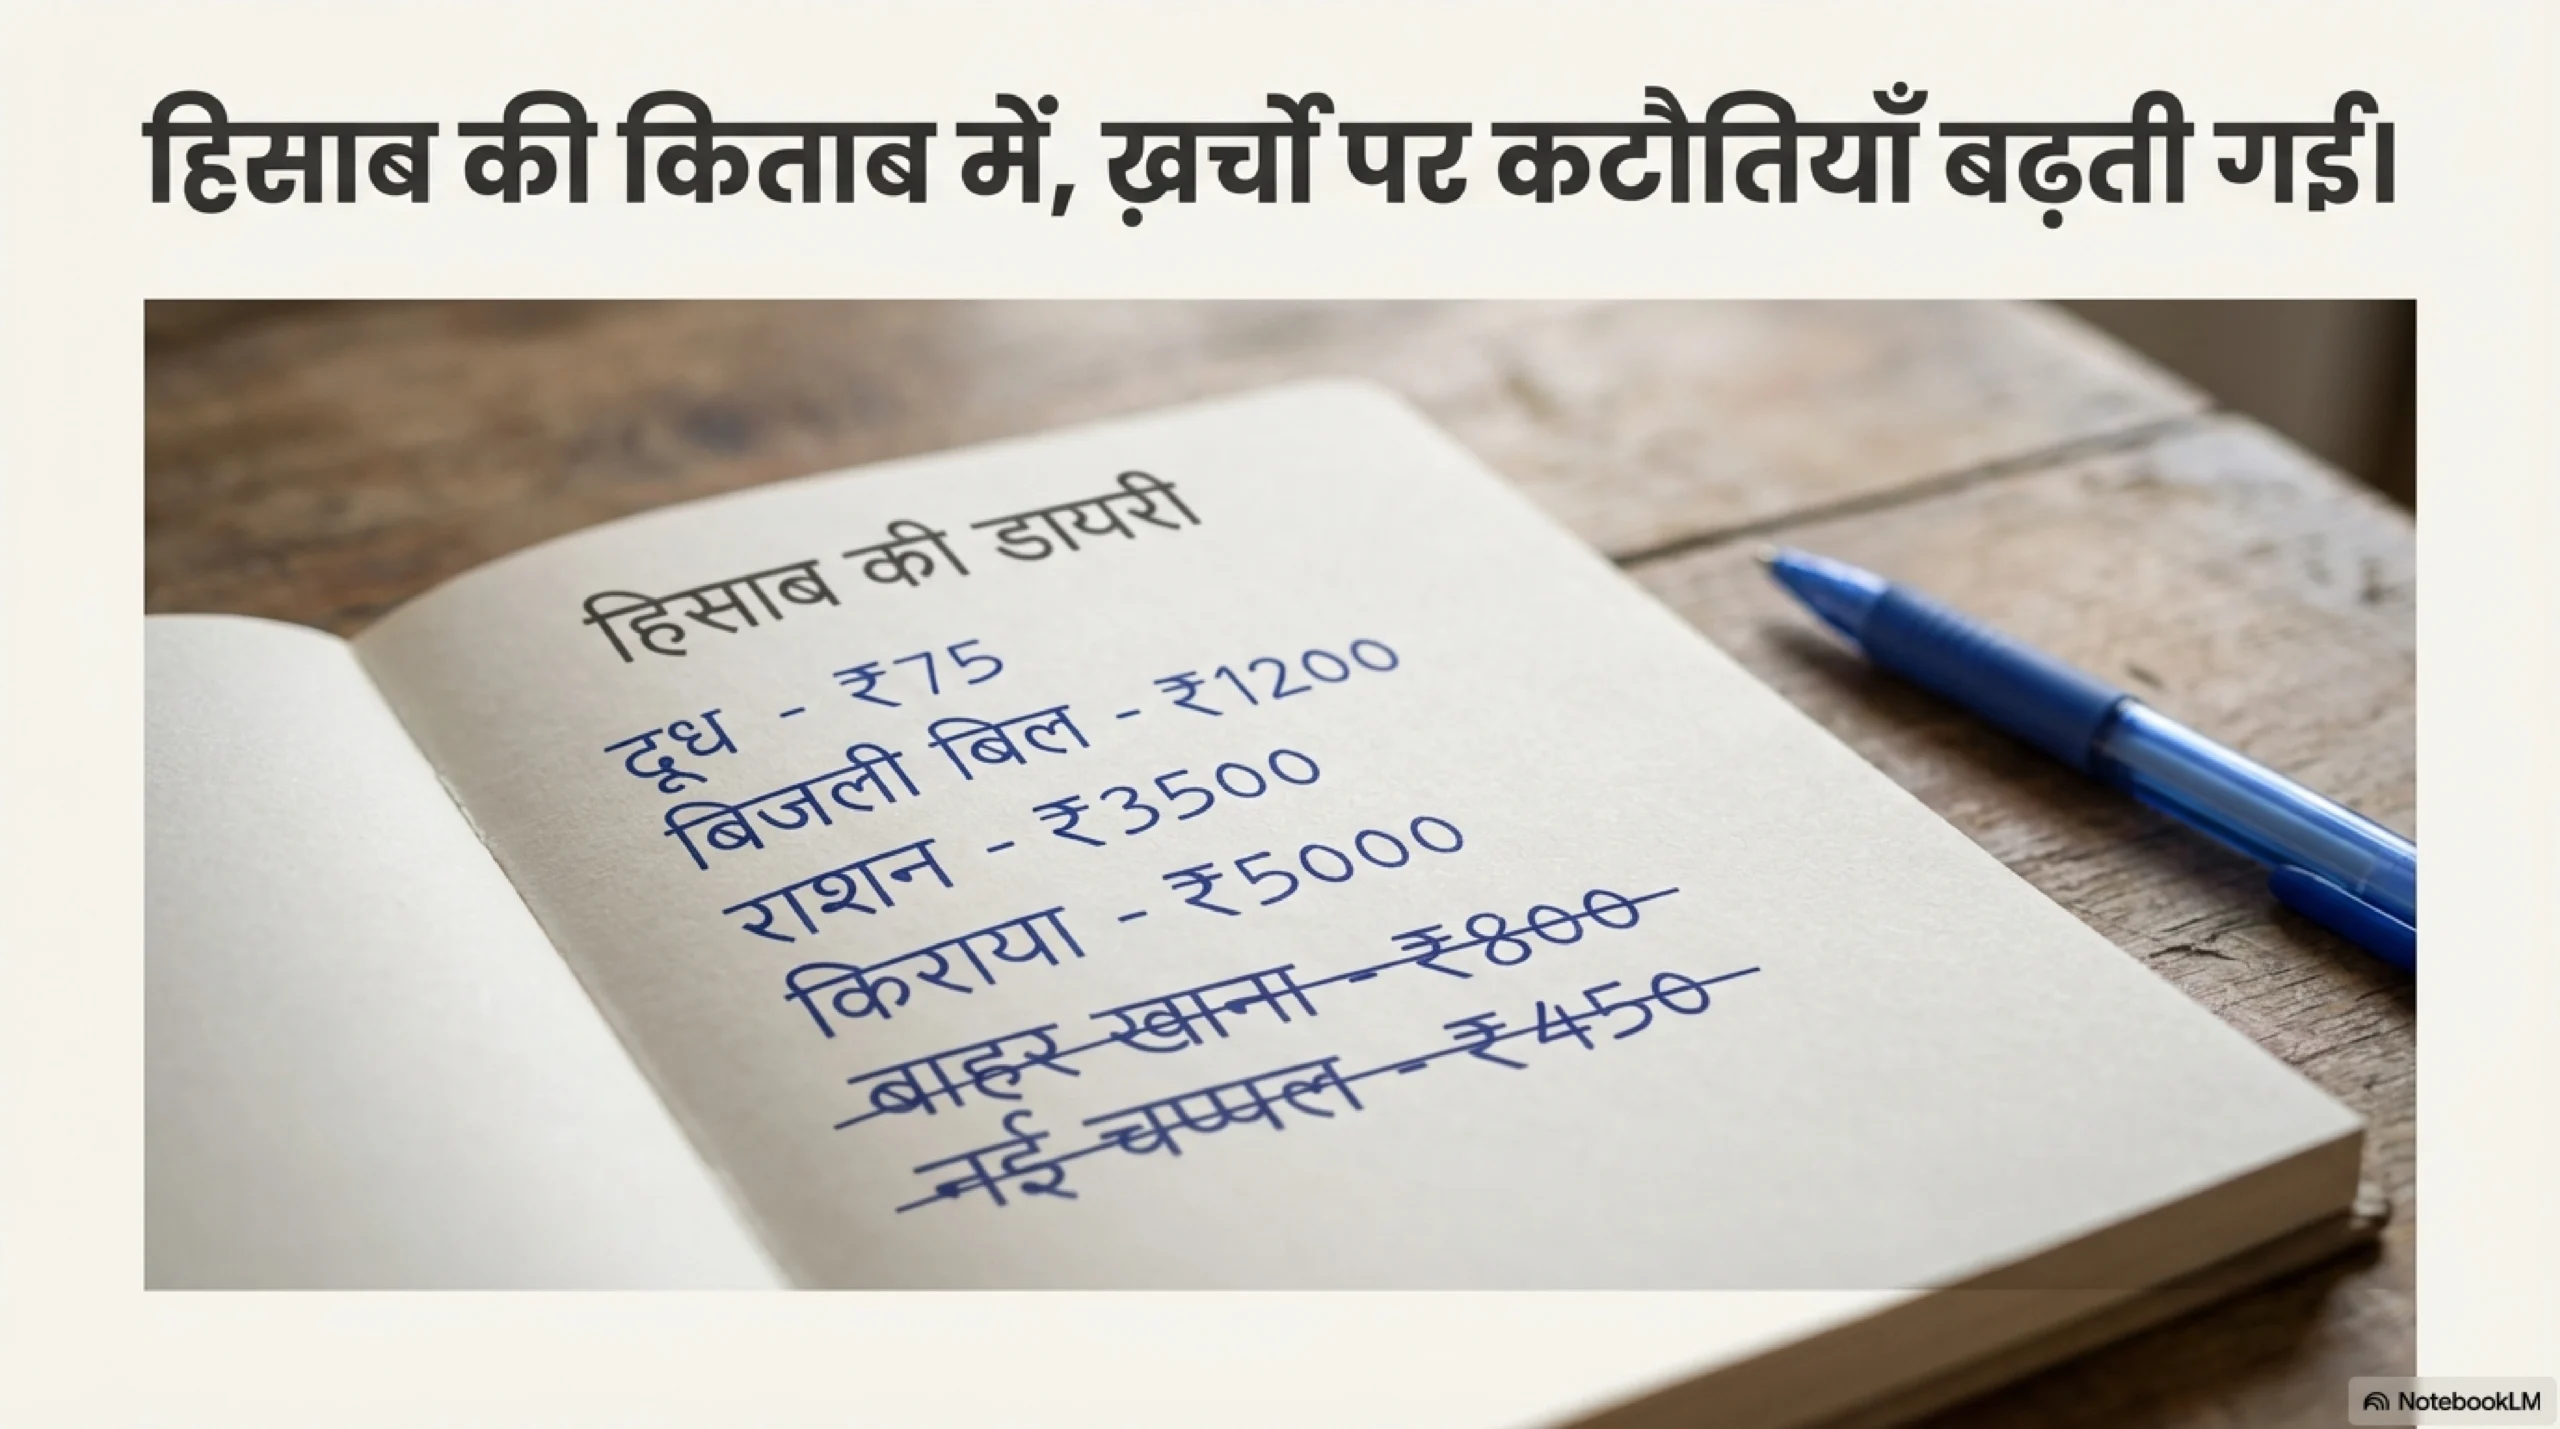 हिसाब की किताब में, ख़र्चों पर कटौतियाँ बढ़ती गई।
हिसाब की डायरी
दूध - ₹75
बिजली बिल - ₹1200
राशन - ₹3500
किराया - ₹5000
बाहर खाना - ₹800
नई चप्पल - ₹450
NotebookLM